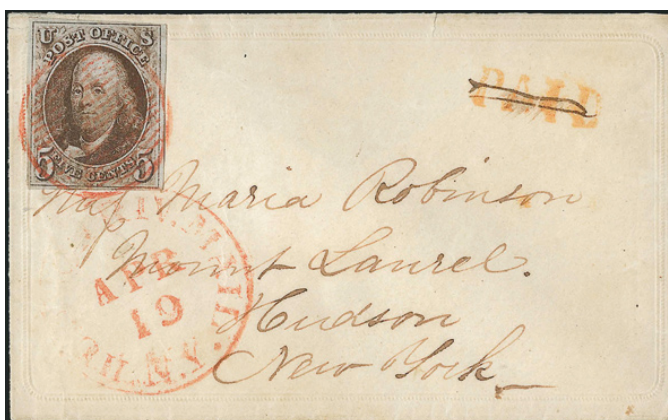 U S
POST OFFICE
5 FIVE CENTS. 5
PAID
Maria Robinson
Mount Laurel.
Hudson
New York
APR
19
N.Y.